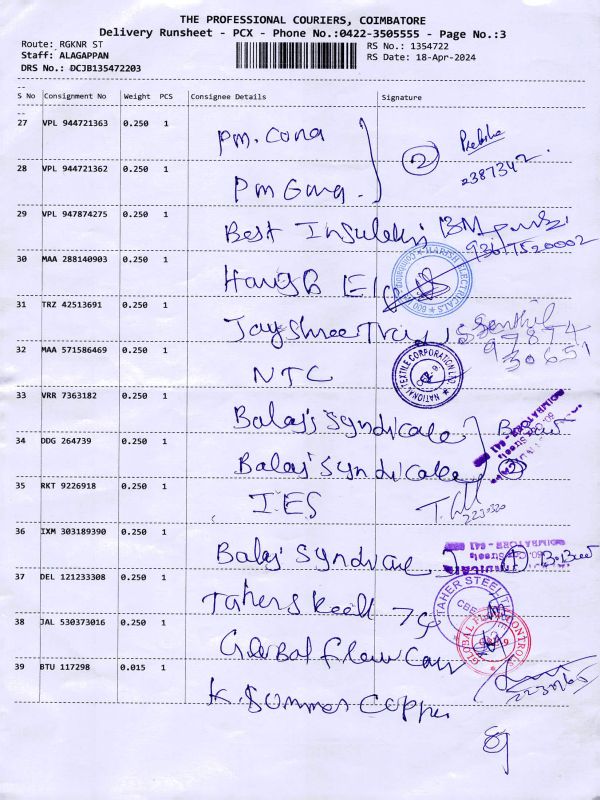 THE PROFESSIONAL COURIERS, COIMBATORE
Delivery Runsheet - PCX - Phone No.:0422-3505555 - Page No.:3
Route: RGKNR ST
RS No.: 1354722
Staff: ALAGAPPAN
RS Date: 18-Apr-2024
DRS No.: DCJB135472203
S No Consignment No Weight PCS Consignee Details Signature
27 VPL 944721363 0.250 1 Pm. Cona
28 VPL 944721362 0.250 1 Pm Gana. 2 2387342
29 VPL 947874275 0.250 1 Best
30 MAA 288140903 0.250 1 HARISH ELECTRICALS
31 TRZ 42513691 0.250 1 Jay Shree Senthil 97874 30651
32 MAA 571586469 0.250 1 NTC NATIONAL TEXTILE CORPORATION LTD
33 VRR 7363182 0.250 1 Balaji Syndicate
34 DDG 264739 0.250 1 Balaji Syndicate
35 RKT 9226918 0.250 1 IES
36 IXM 303189390 0.250 1 Balaji COIMBATORE - 641
37 DEL 121233308 0.250 1 TAHER STEEL
38 JAL 530373016 0.250 1 Global Flow GLOBAL FLOW CONTROL
39 BTU 117298 0.015 1 K. Sommer Copper